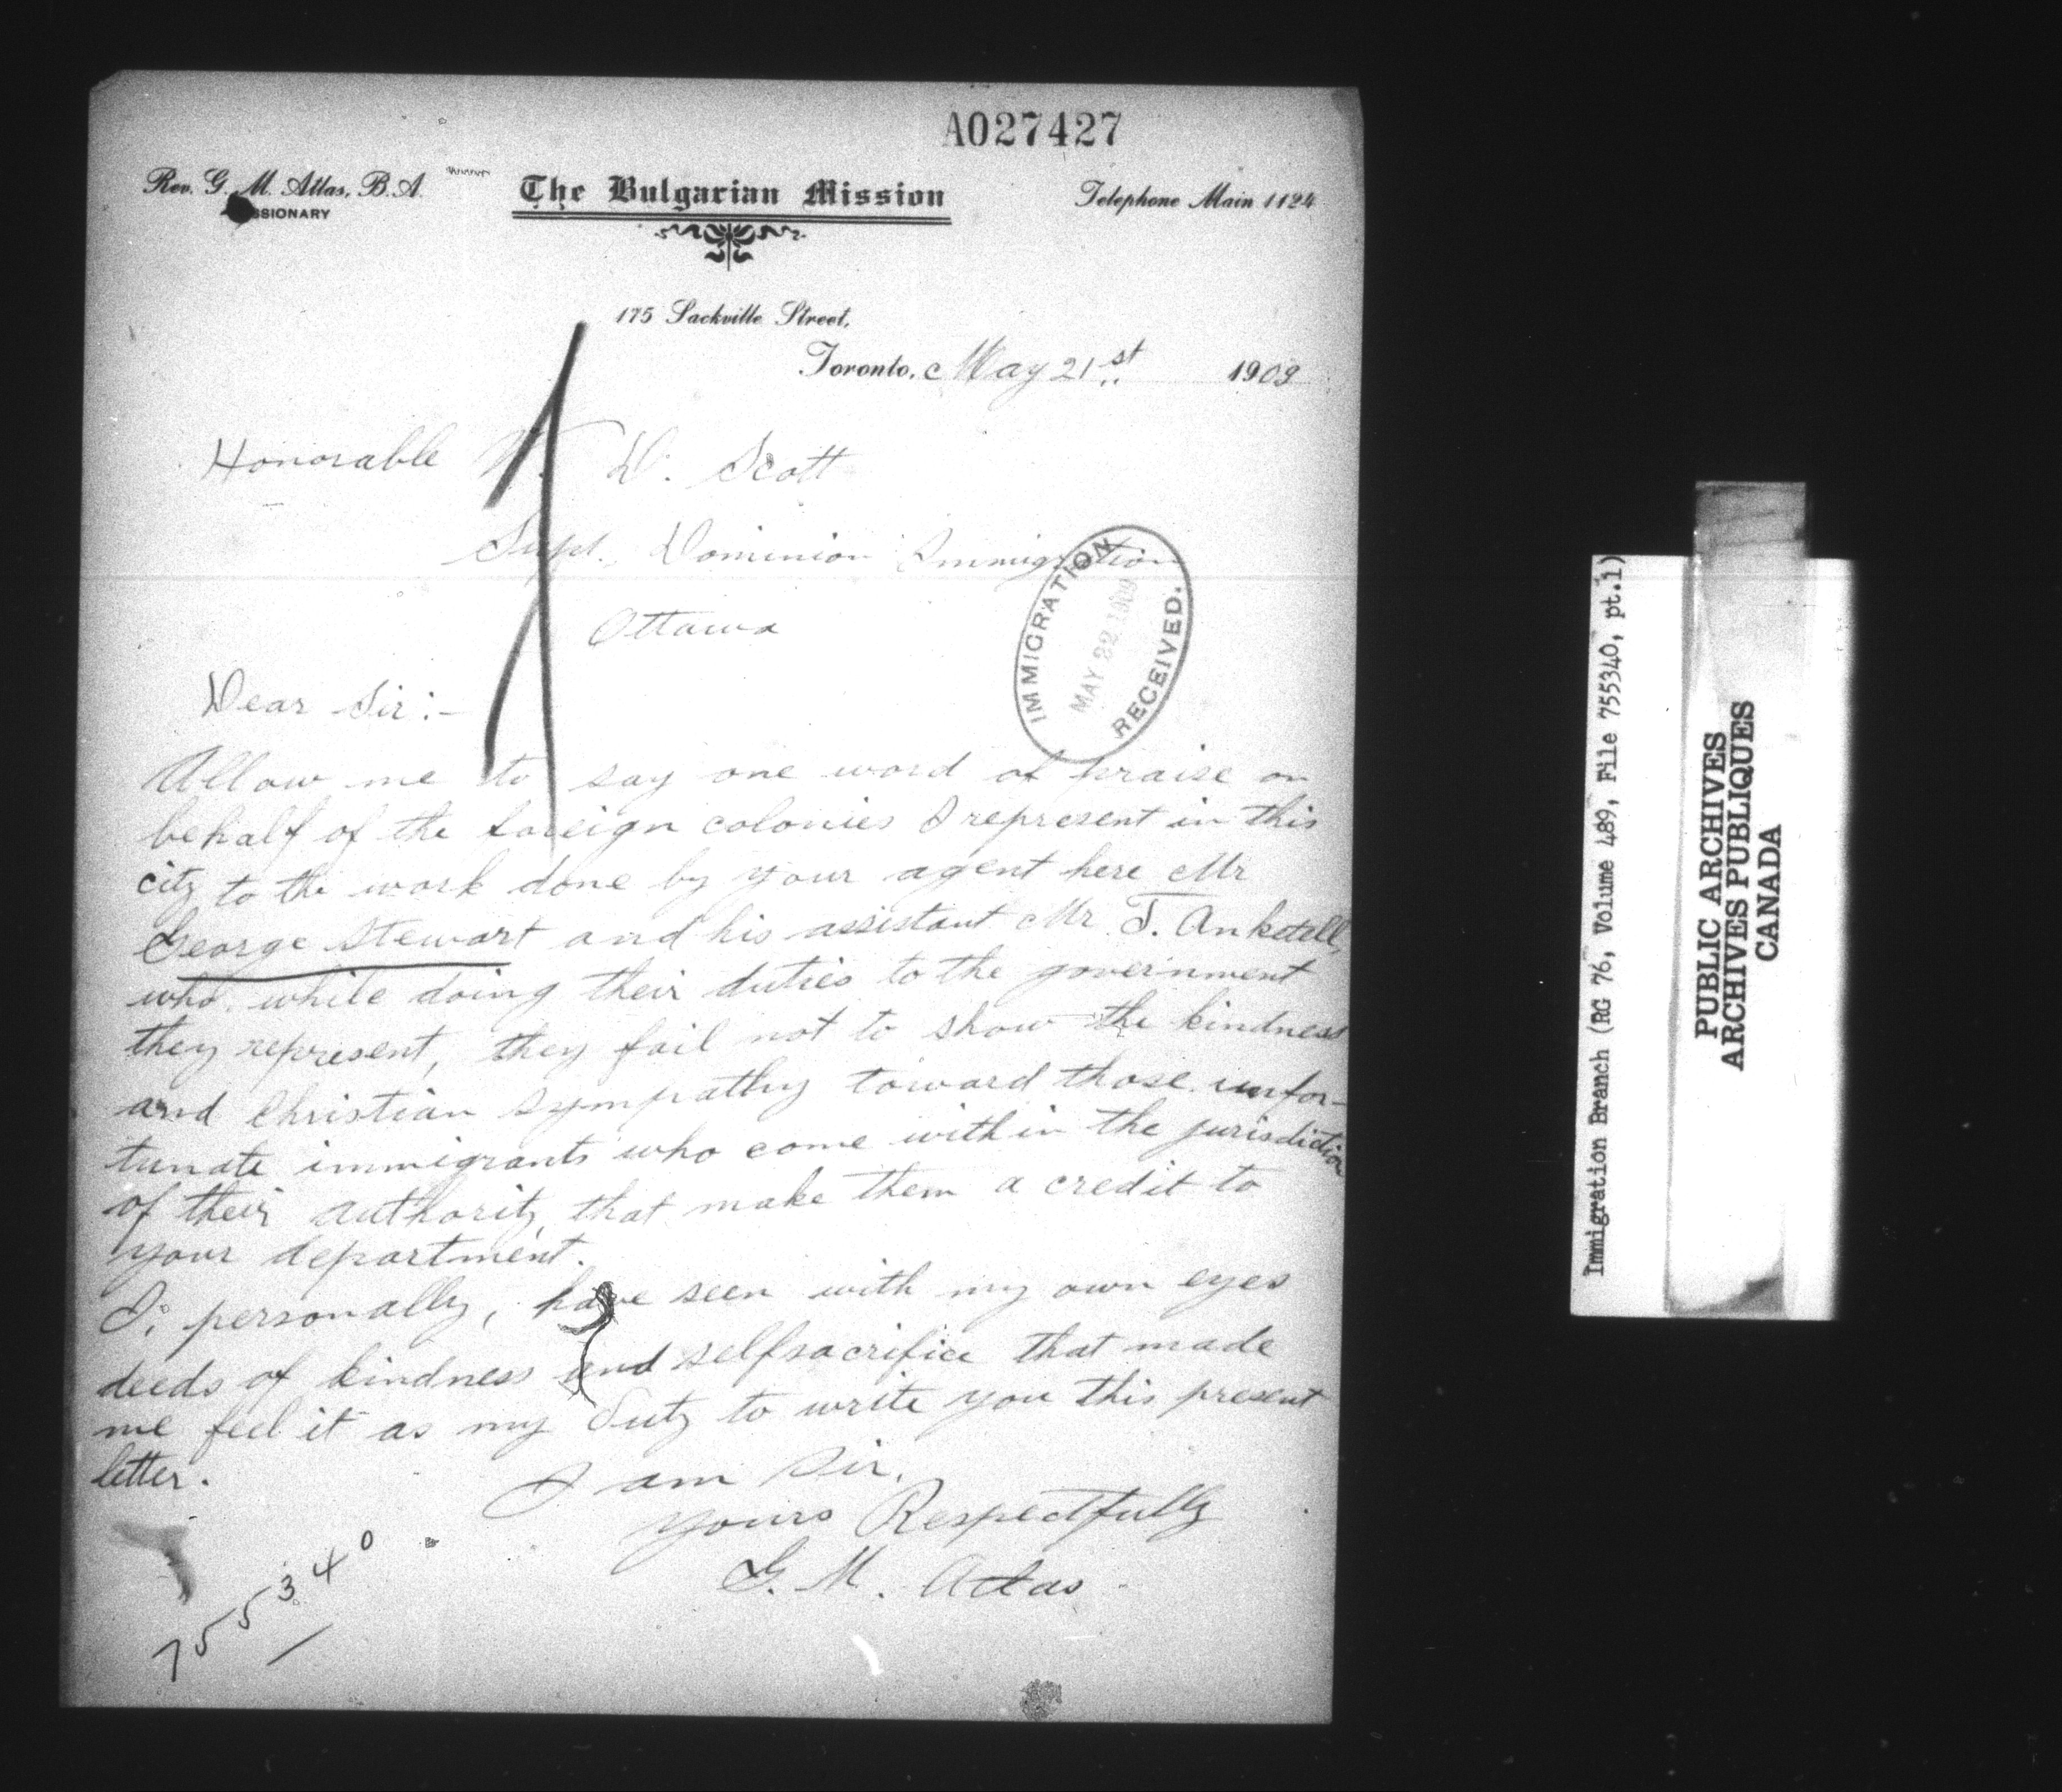 A027427
Rev. G. M. Atlas, B.A.
SSIONARY
The Bulgarian Mission
Telephone Main 1124
175 Sackville Street,
Toronto, May 21st 1909
Honorable W. D. Scott
Supt. Dominion Immigration
Ottawa
IMMIGRATION
MAY 22 1909
RECEIVED.
Dear Sir:-
Allow me to say one word of praise on
behalf of the foreign colonies I represent in this
city to the work done by your agent here Mr
George Stewart and his assistant Mr. T. Anketell,
who while doing their duties to the government
they represent, they fail not to show the kindness
and Christian sympathy toward those unfor-
tunate immigrants who come within the jurisdiction
of their authority, that make them a credit to
your department.
I, personally, have seen with my own eyes
deeds of kindness and selfsacrifice that made
me feel it as my Duty to write you this present
letter.
I am Sir,
Yours Respectfully
G. M. Atlas
755340
Immigration Branch (RG 76, Volume 489, File 755340, pt.1)
PUBLIC ARCHIVES
ARCHIVES PUBLIQUES
CANADA